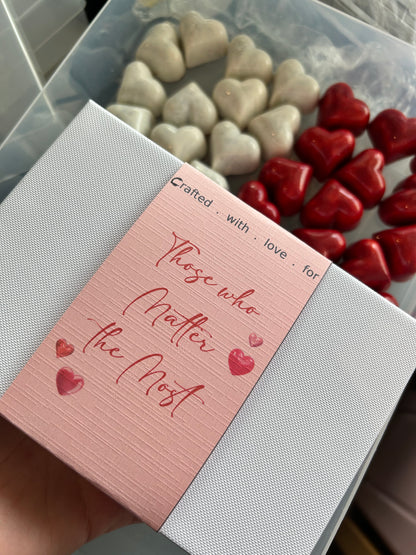 Crafted . with . love . for
Those who
Matter
the Most